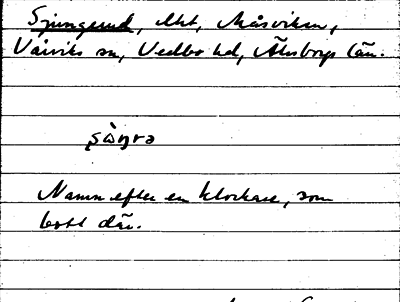 Sjungerud, lht, Måsviken,
Vårviks sn, Vedbo hd, Älvsborgs län.
Namn efter en klockare, som
bott där.